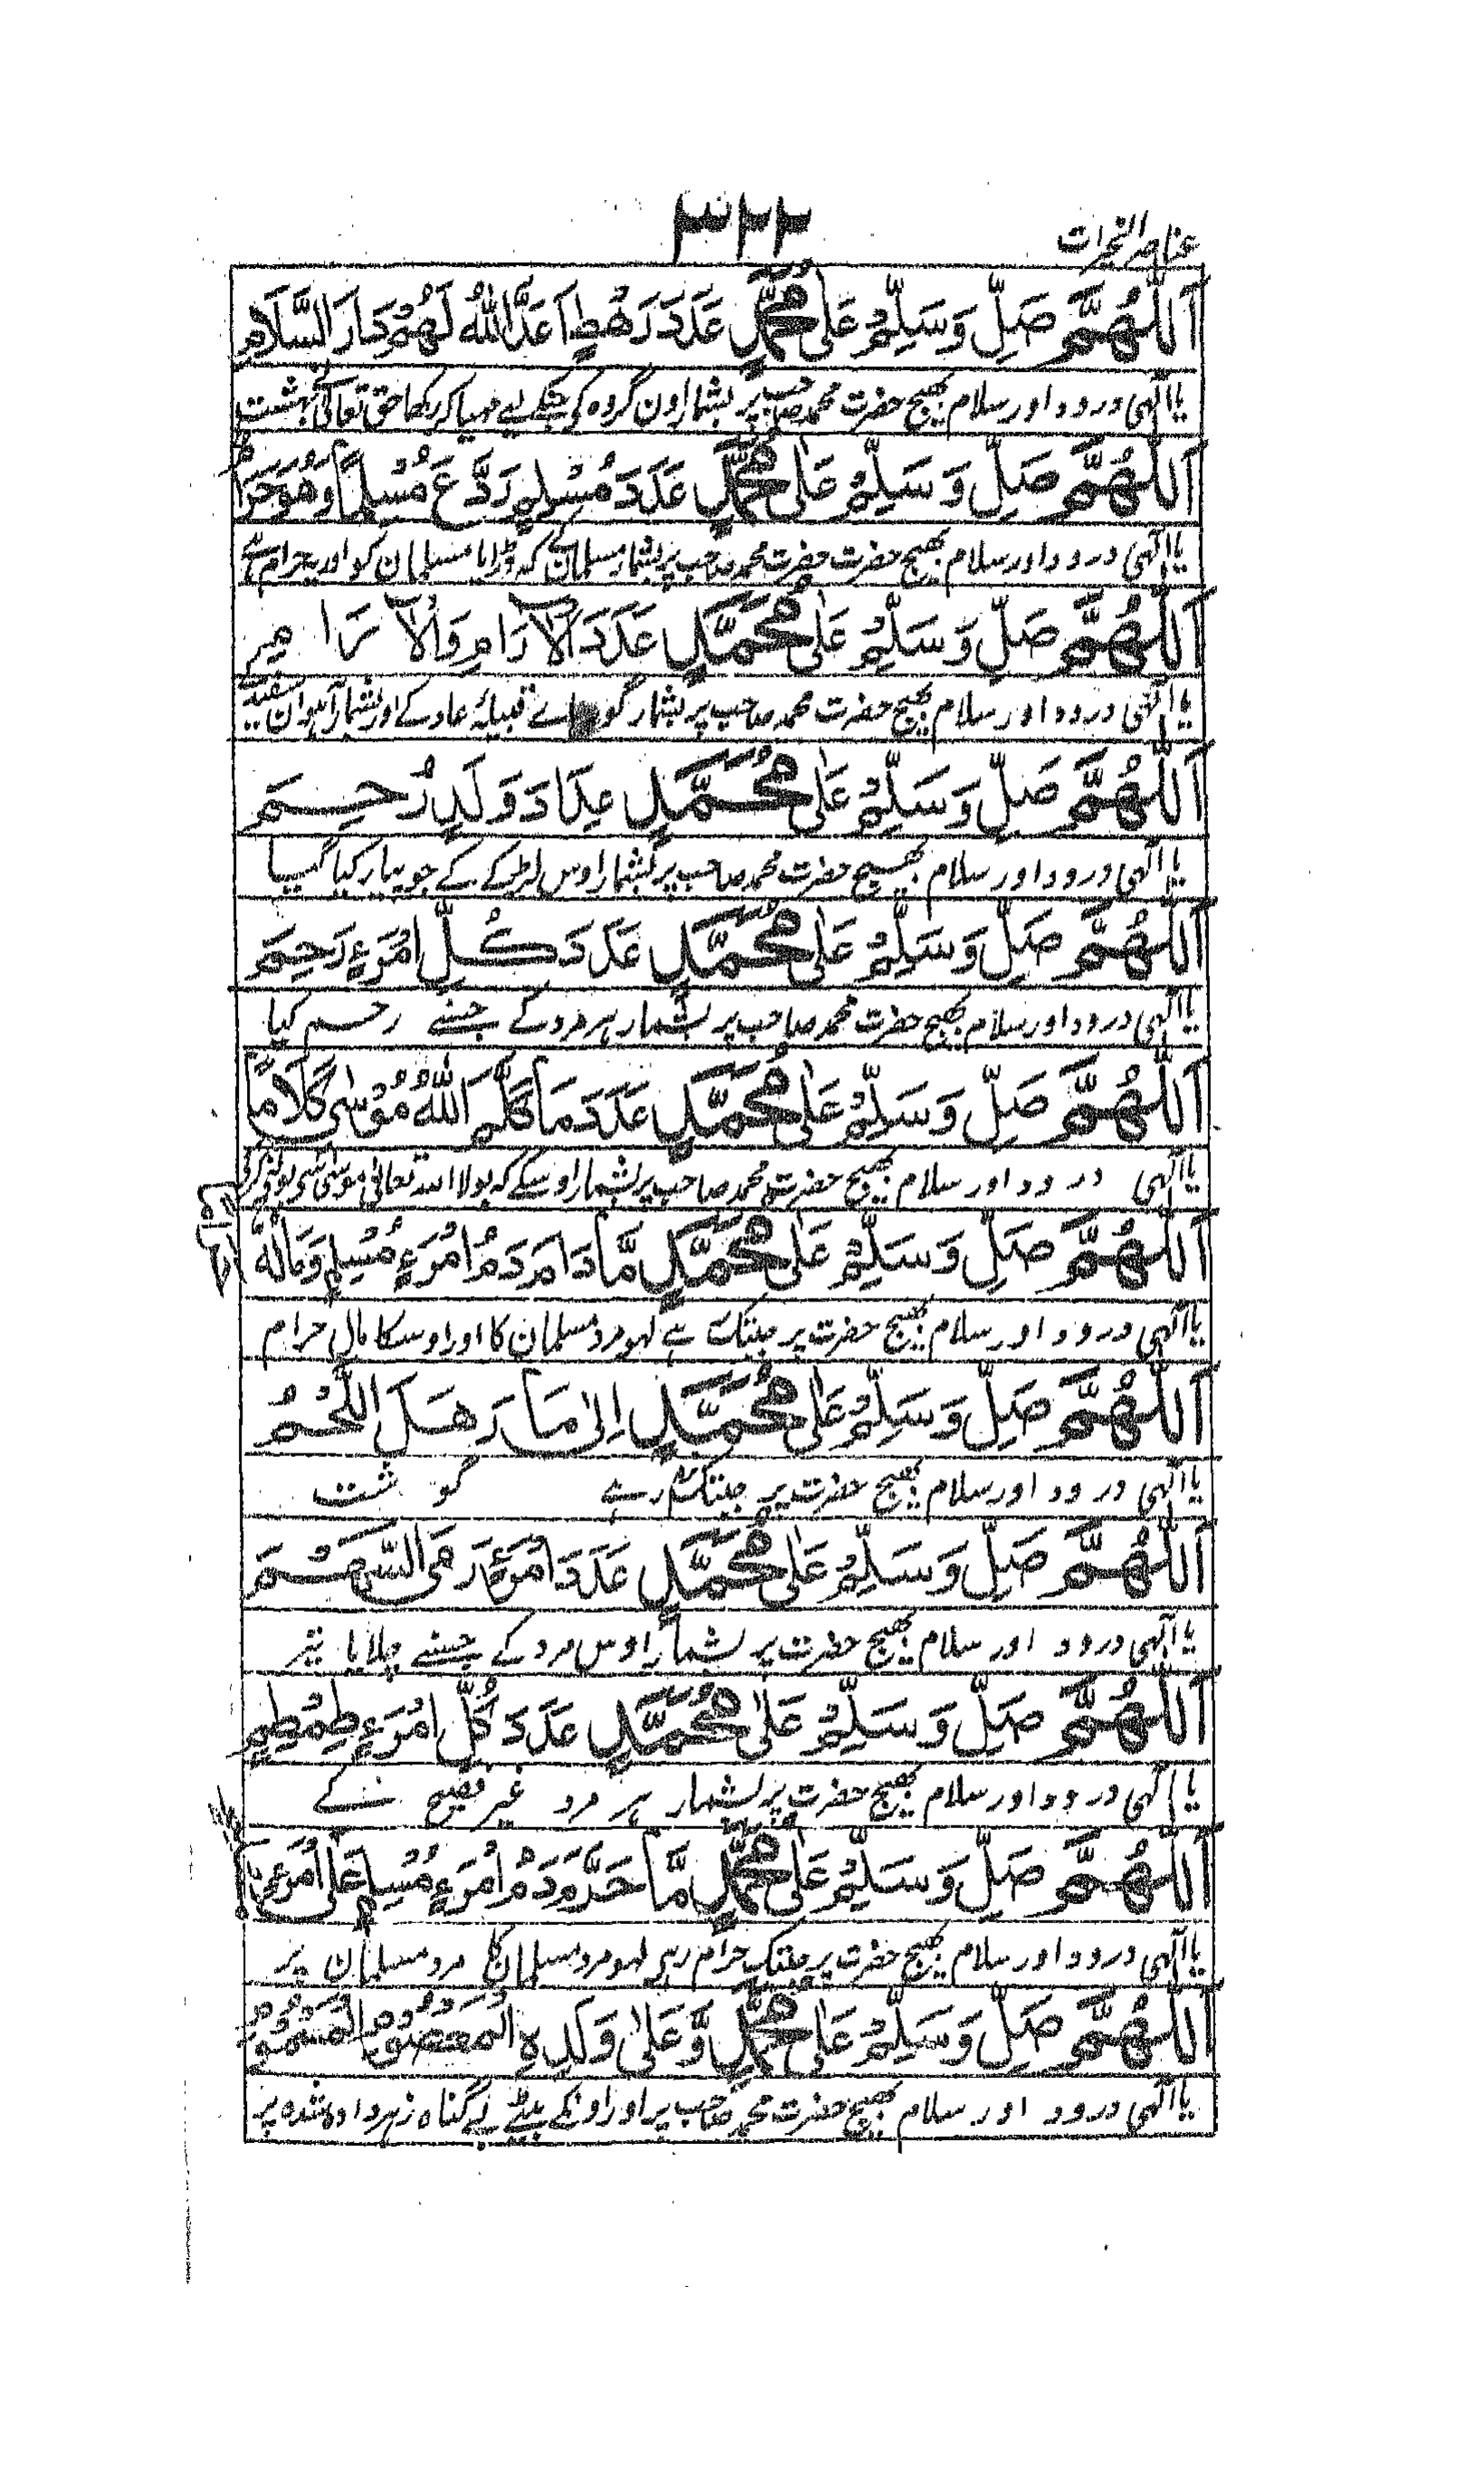 ۳۲۲
عناصر الخیرات
اَللّٰهُمَّ صَلِّ وَسَلِّمْ عَلٰى مُحَمَّدٍ عَدَدَ رَهْطٍ اَعَدَّ اللّٰهُ لَهُمْ دَارَ السَّلَامِ
یا الٰہی درود اور سلام بھیج حضرت محمد صاحب پر بشمار اون گروہ کی جنکے لیے مہیا کر رکھا حق تعالٰی نے بہشت
اَللّٰهُمَّ صَلِّ وَسَلِّمْ عَلٰى مُحَمَّدٍ عَدَدَ مُسْلِمٍ رَدَّعَ مُسْلِمًا وَهُوَ حَرَامٌ
یا الٰہی درود اور سلام بھیج حضرت حضرت محمد صاحب پر بشمار مسلمان کے کہ ڈرایا مسلمان کو اور یہ حرام ہے
اَللّٰهُمَّ صَلِّ وَسَلِّمْ عَلٰى مُحَمَّدٍ عَدَدَ الْاٰرَامِ وَالْاٰرَامِ
یا الٰہی درود اور سلام بھیج حضرت محمد صاحب پر بشمار قبیلۂ عاد کے اور بشمار آہوان سفید
اَللّٰهُمَّ صَلِّ وَسَلِّمْ عَلٰى مُحَمَّدٍ عِدَادَ وَلَدٍ رُحِمَ
یا الٰہی درود اور سلام بھیج حضرت محمد صاحب پر بشمار اوس لڑکے کے جو پیار کیا گیا
اَللّٰهُمَّ صَلِّ وَسَلِّمْ عَلٰى مُحَمَّدٍ عَدَدَ كُلِّ امْرَءٍ رَحِمَ
یا الٰہی درود اور سلام بھیج حضرت محمد صاحب پر بشمار ہر مرد کے جسنے رحم کیا
اَللّٰهُمَّ صَلِّ وَسَلِّمْ عَلٰى مُحَمَّدٍ عَدَدَ مَا كَلَّمَ اللّٰهُ مُوْسٰى كَلَامًا
یا الٰہی درود اور سلام بھیج حضرت محمد صاحب پر بشمار اوسکے کہ بولا اللہ تعالٰی موسٰی سے
اَللّٰهُمَّ صَلِّ وَسَلِّمْ عَلٰى مُحَمَّدٍ مَّا دَامَ دَمُ امْرَءٍ مُسْلِمٍ وَمَالُهٗ
یا الٰہی درود اور سلام بھیج حضرت پر جبتک ہے لہو مرد مسلمان کا اور اوسکا مال حرام
اَللّٰهُمَّ صَلِّ وَسَلِّمْ عَلٰى مُحَمَّدٍ اِلٰى مَا رَهَلَ اللَّحْمُ
یا الٰہی درود اور سلام بھیج حضرت پر جبتک رہے گوشت
اَللّٰهُمَّ صَلِّ وَسَلِّمْ عَلٰى مُحَمَّدٍ عَدَدَ امْرَءٍ رَمَى السَّهْمَ
یا الٰہی درود اور سلام بھیج حضرت پر بشمار اوس مرد کے جسنے چلایا تیر
اَللّٰهُمَّ صَلِّ وَسَلِّمْ عَلٰى مُحَمَّدٍ عَدَدَ كُلِّ امْرَءٍ طِمْطِمٍ
یا الٰہی درود اور سلام بھیج حضرت پر بشمار ہر مرد غیر فصیح کے
اَللّٰهُمَّ صَلِّ وَسَلِّمْ عَلٰى مُحَمَّدٍ مَّا حَرَّمَ دَمُ امْرَءٍ مُسْلِمٍ عَلٰى امْرَءٍ
یا الٰہی درود اور سلام بھیج حضرت پر جبتک حرام رہے لہو مرد مسلمان کا مرد مسلمان پر
اَللّٰهُمَّ صَلِّ وَسَلِّمْ عَلٰى مُحَمَّدٍ وَّعَلٰى وَلَدِهِ الْمَعْصُوْمِ الْمَسْمُوْمِ
یا الٰہی درود اور سلام بھیج حضرت محمد صاحب پر اور اونکے بیٹے بے گناہ زہر دادہ شدہ پر